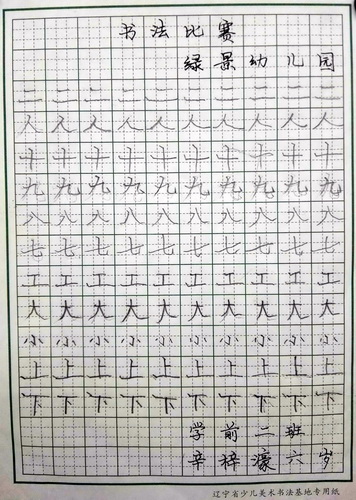 书法比赛
绿景幼儿园
二二二二二二二二二二
人人人人人人人人人人
十十十十十十十十十十
九九九九九九九九九九
八八八八八八八八八八
七七七七七七七七七七
工工工工工工工工工工
大大大大大大大大大大
小小小小小小小小小小
上上上上上上上上上上
下下下下下下下下下下
学前二班
辛梓濠六岁
辽宁省少儿美术书法基地专用纸